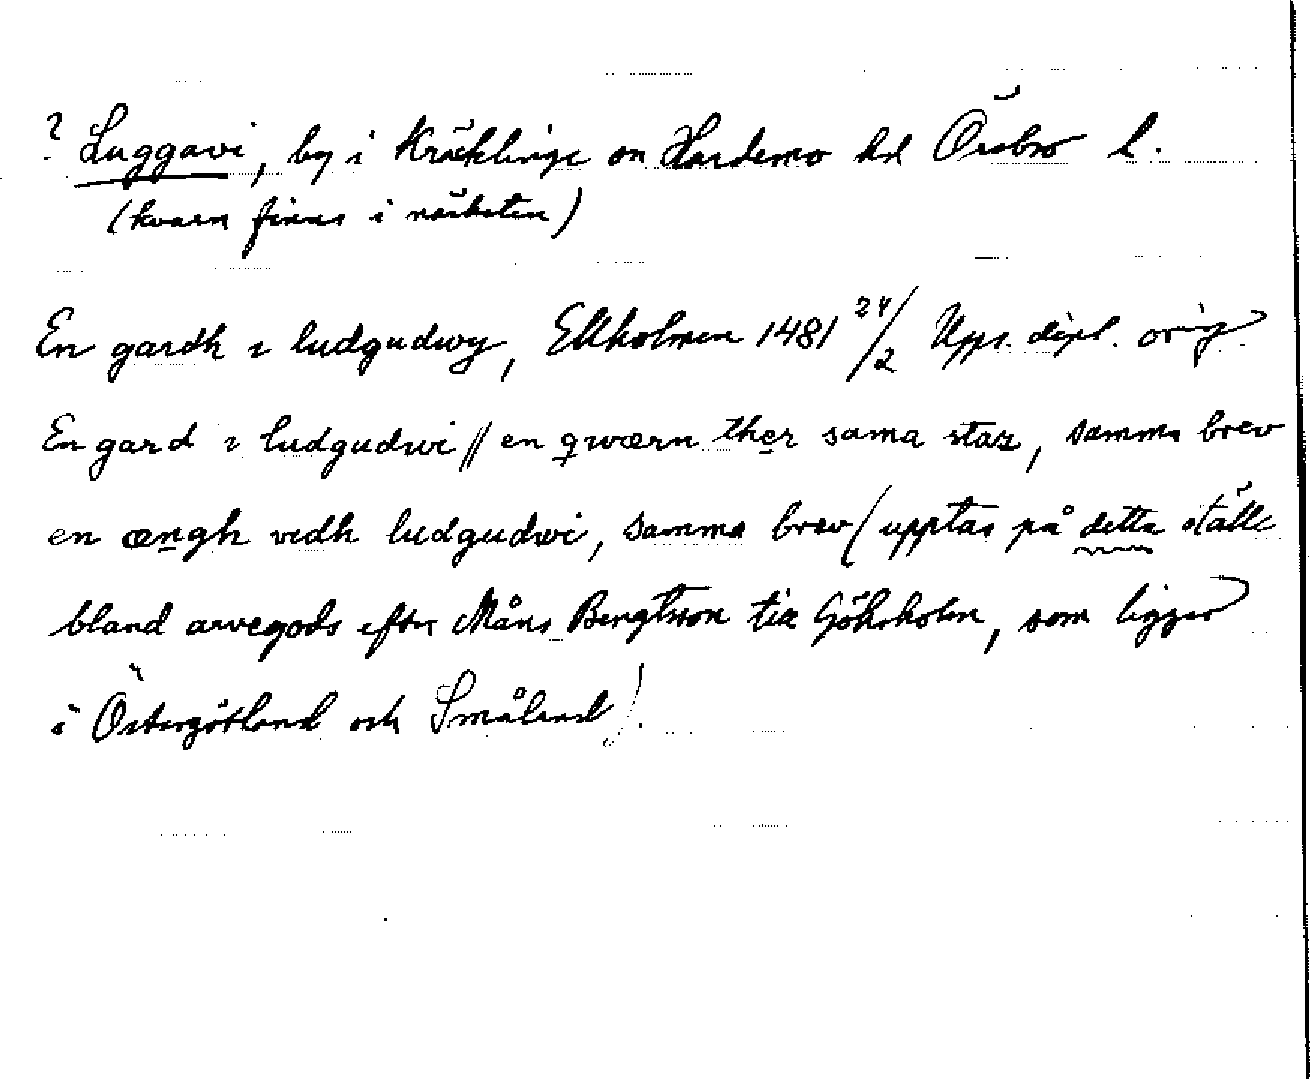 ? Luggavi, by i Kräcklinge sn Hardemo hd Örebro l.
(kvarn finns i närheten)
En gardh i ludgudwy, Ekholmen 1481 24/2 Upps. dipl. orig.
En gard i ludgudwi // en qwærn ther sama staz, samma brev
en ængh vidh ludgudwi, samma brev (upptas på detta ställe
bland arvegods efter Måns Bengtsson till Göksholm, som ligger
i Östergötland och Småland).